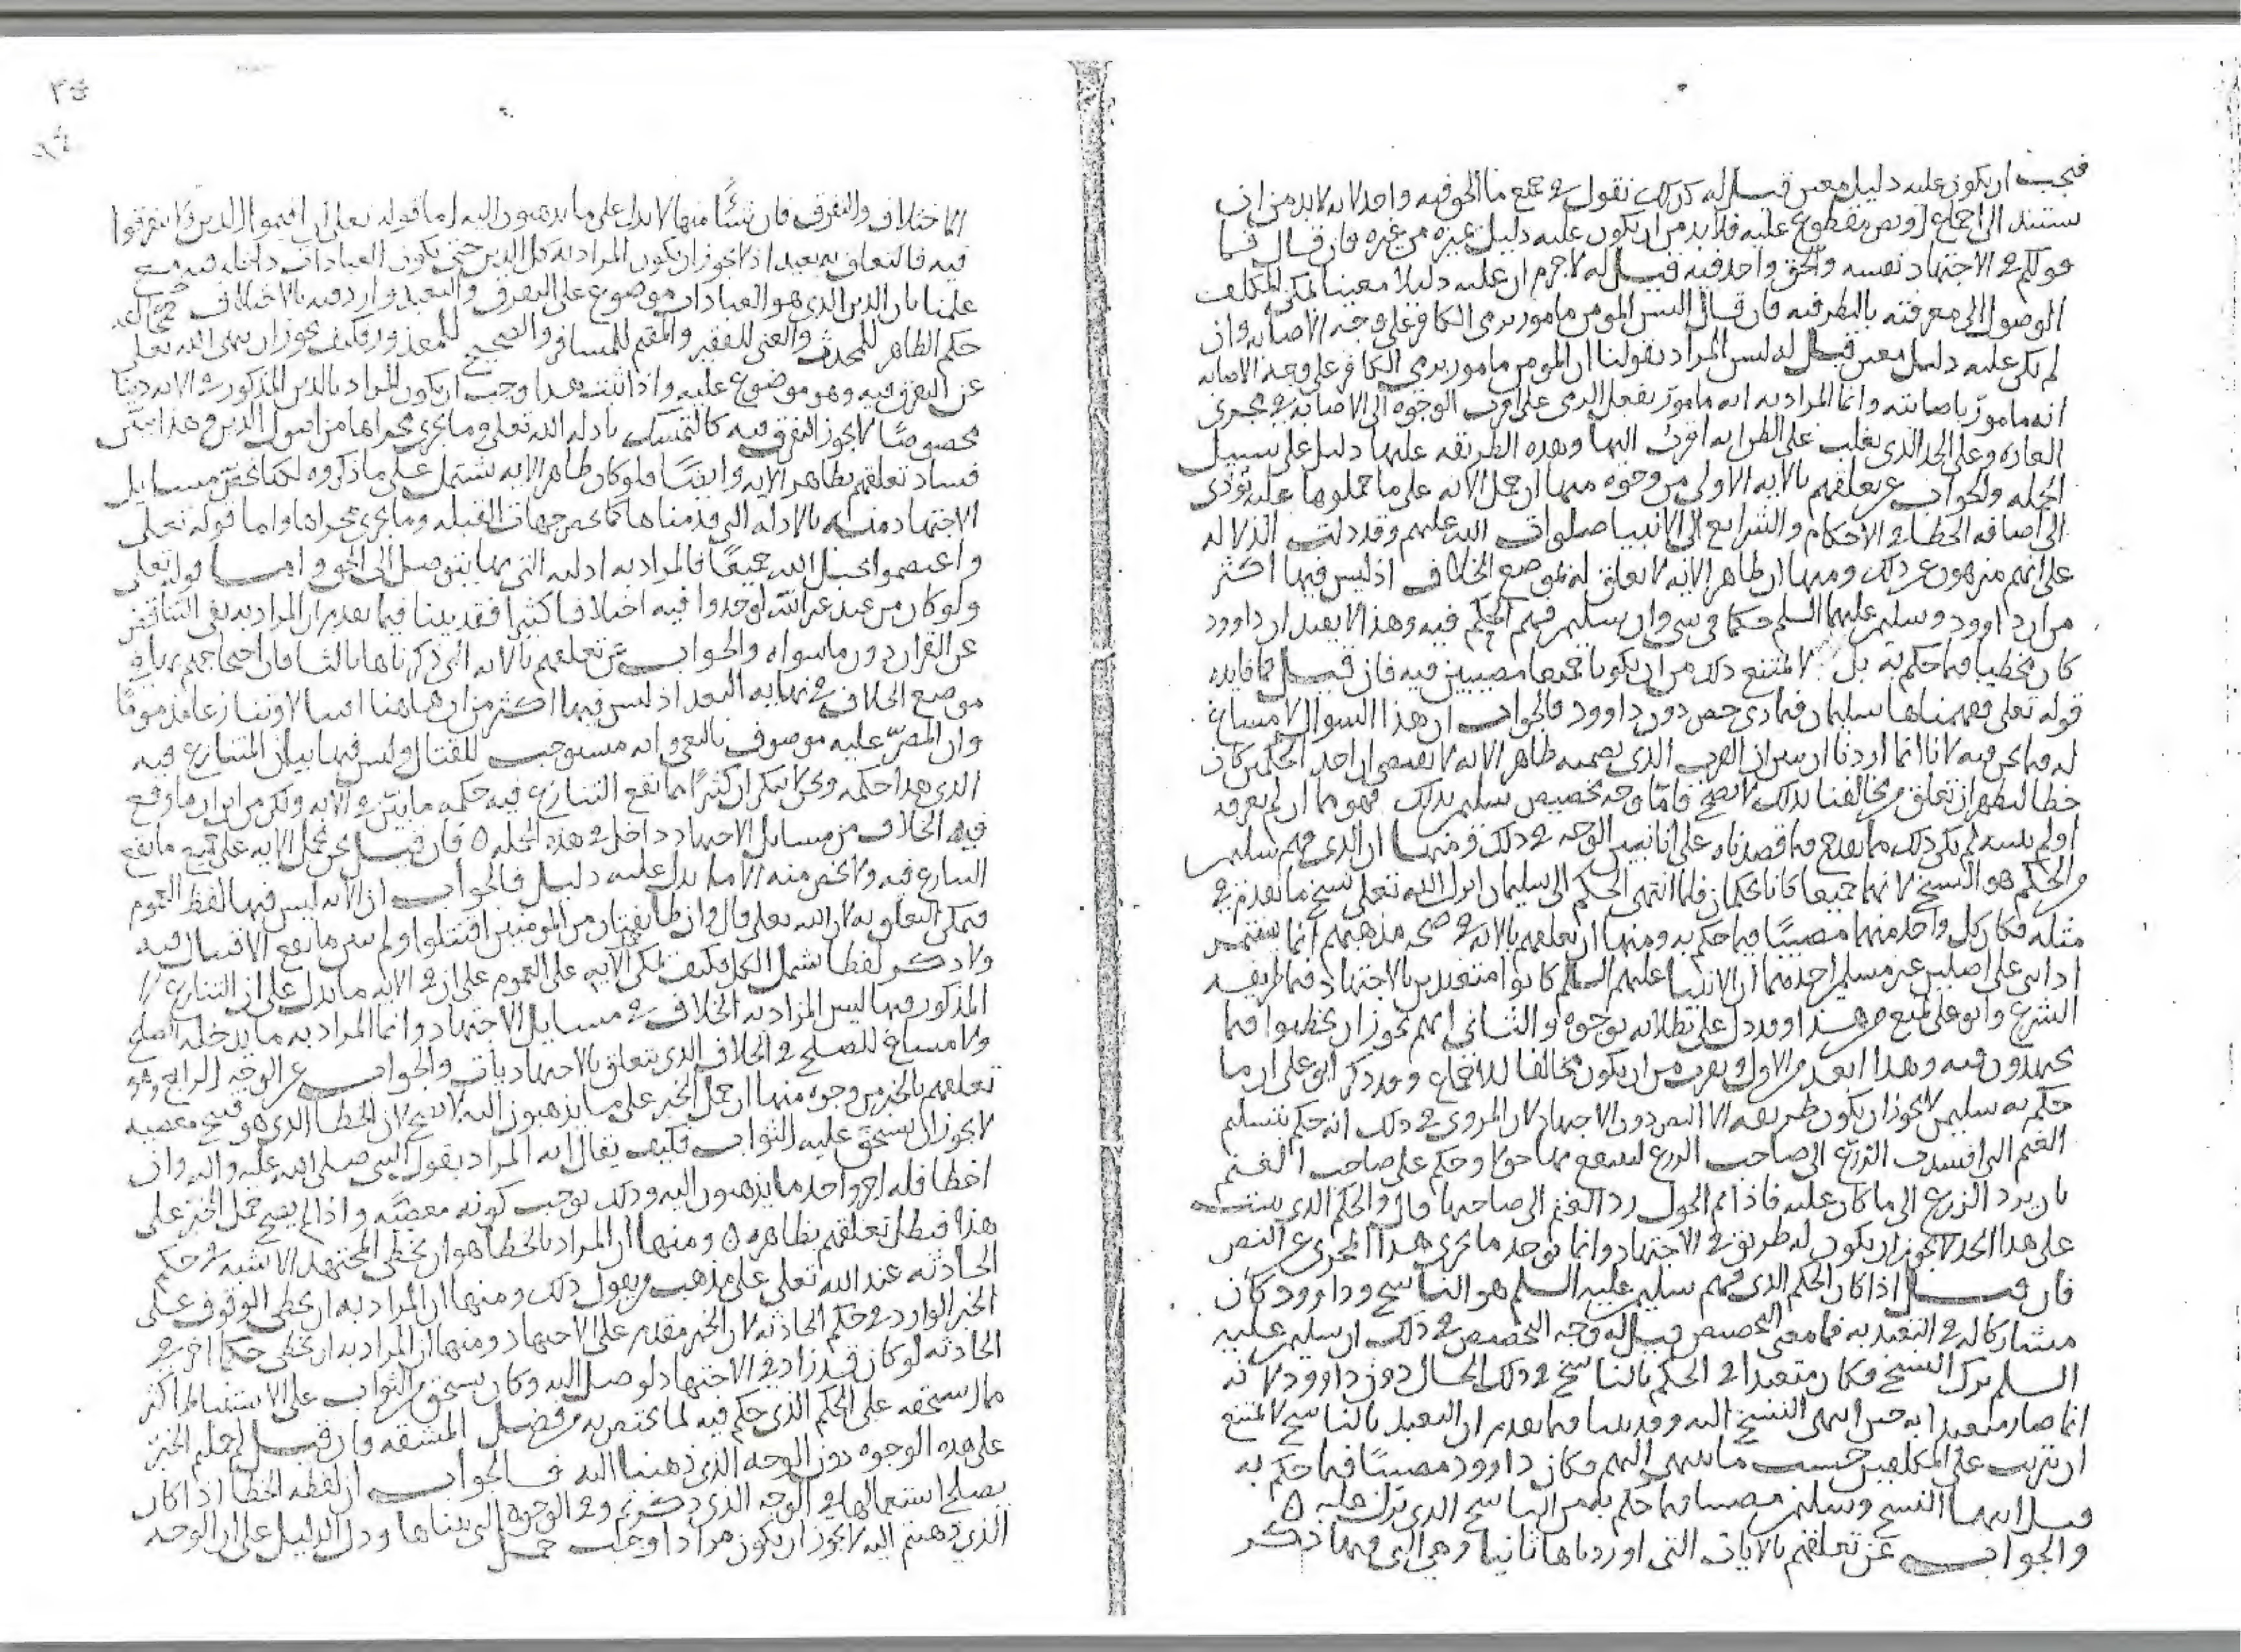 فيجب ان يكون عليه دليل معين قيل له كذلك نقول في جميع ما الحق فيه واحد لانه لا بد من ان
يستند الى اجماع او نص مقطوع عليه فلا بد من ان يكون عليه دليل يميزه من غيره فان قال فما
قولكم في الاجتهاد نفسه والحق واحد فيه قيل له لا جرم ان عليه دليلا معينا يمكن المكلف
الوصول الى معرفته بالنظر فيه فان قال اليس المومن مامور برمي الكافر على وجه الاصابه وان
لم يكن عليه دليل معين قيل له ليس المراد بقولنا ان المومن مامور برمي الكافر على وجه الاصابه
انه مامور باصابته وانما المراد به انه مامور بفعل الرمي على اقرب الوجوه الى الاصابة في مجرى
العاده وعلى الحد الذي يغلب على الظن انه اقرب اليها وهذه الطريقه عليها دليل على سبيل
الجمله والجواب عن تعلقهم بالايه الاولى من وجوه منها ان حمل الايه على ما حملوها عليه يؤدى
الى اضافه الخطا في الاحكام والشرايع الى الانبيا صلوات الله عليهم وقد دلت الدلاله
على انهم منزهون عن ذلك ومنها ان ظاهر الايه لا تعلق له بموضع الخلاف اذ ليس فيها اكثر
من ان داوود وسليمن عليهما السلم حكما في شي وان سليمن فهم الحكم فيه وهذا لا يفيد ان داوود
كان مخطيا فيما حكم به بل لا يمتنع ذلك من ان يكونا جميعا مصيبين فيه فان قيل فما فايده
قوله تعلى ففهمناها سليمان فما دى خص دون داوود فالجواب ان هذا السوال لا مساغ
له فيما نحن فيه لانا انما اردنا ان نبين ان القدر الذي يضمنه ظاهر الايه لا يقتضي ان احد الحكمين كان
خطا ليظهر ان تعلق مخالفنا بذلك لا يصح فاما وجه تخصيص سليمن بذلك فهو مما ان لم يعرفه
او لم نبينه لم يكن ذلك مما يقدح فيما قصدناه على انا نبين الوجه في ذلك فمنها ان الذي فهم سليمن
من الحكم هو النسخ لانهما جميعا كانا يحكمان فلما انتهى الحكم الى سليمان انزل الله تعلى نسخ ما تقدم في
مثله فكان كل واحد منهما مصيبًا فيما حكم به ومنها ان تعلقهم بالايه في صحه مذهبهم انما يستمر
اذا بني على اصلين غير مسلمين احدهما ان الانبيا عليهم السلم كانوا متعبدين بالاجتهاد فيما طريقه
الشرع وابو على يمنع من هذا وقد دل على بطلانه بوجوه والثاني انهم يجوز ان يخطيوا فيما
يجتهدون فيه وهذا ابعد من الاول ويقرب من ان يكون مخالفا للاجماع وقد ذكر ابو على ان ما
حكم به سليمن لا يجوز ان يكون طريقه الا النص دون الاجتهاد لان المروى في ذلك انه حكم بتسليم
الغنم التي افسدت الزرع الى صاحب الزرع لينتفع بها حولا وحكم على صاحب الغنم
بان يرد الزرع الى ما كان عليه فاذا تم الحول رد الغنم الى صاحبها قال والحكم الذي يثبت
على هذا الحد لا يجوز ان يكون له طريق في الاجتهاد وانما يوخذ ما يجرى هذا المجرى من النص
فان قيل اذا كان الحكم الذي فهم سليمن عليه السلم هو الناسخ وداوود كان
مشاركا له في التعبد به فما معنى التخصيص قيل له وجه التخصيص في ذلك ان سليمن عليه
السلم نزل النسخ فكان متعبدا في الحكم بالناسخ في ذلك الحال دون داوود لانه
انما صار متعبدا به حين انتهى النسخ اليه وقد بينا فيما تقدم ان التعبد بالناسخ لا يمتنع
ان يترتب على المكلفين بحسب ما ينتهي اليهم فكان داوود مصيبًا فيما حكم به
قبل انتها النسخ وسليمن مصيبا فيما حكم به من الناسخ الذي نزل عليه ٥
والجواب عن تعلقهم بالايات التي اوردناها ثانيا وهي التي فيها ذكر
الاختلاف والتفرق فان شيئًا منها لا يدل على ما يذهبون اليه اما قوله تعالى ان اقيموا الدين ولا تتفرقوا
فيه فالتعلق به بعيد اذ لا يجوز ان يكون المراد به كل الدين حتى يكون العبادات داخله فيه مع
علمنا بان الدين الذي هو العبادات موضوع على التفرق والتعبد وارد فيه بالاختلاف
حكم الطاهر للمحدث والغنى للفقير والمقيم للمسافر والصحيح للمعذور فكيف يجوز ان ينهى الله تعلى
عن التفرق فيه وهو موضوع عليه واذا ثبت هذا وجب ان يكون المراد بالدين المذكور في الايه دينا
مخصوصًا لا يجوز التفرق فيه كالتمسك بادله الله تعلى وما يجرى مجراها من اصول الدين وهذا يبين
فساد تعلقهم بظاهر الايه وايضًا فلو كان ظاهر الايه يشتمل على ما ذكروه لكنا نخص مسايل
الاجتهاد منه بالادله التي قدمناها كما نخص جهات القبله وما يجرى مجراها واما قوله تعلى
واعتصموا بحبل الله جميعًا فالمراد به ادلته التي بها يتوصل الى الحق واما قوله تعلى
ولو كان من عند غير الله لوجدوا فيه اختلافا كثيرا فقد بينا فيما تقدم ان المراد به نفي التناقض
عن القران دون ما سواه والجواب عن تعلقهم بالايه التي ذكرناها ثالثا فان احتجاجهم بها في
موضع الخلاف في نهايه البعد اذ ليس فيها اكثر من ان هاهنا اقتتالا وتنازعا مذمومًا
وان المصرّ عليه موصوف بالبغي وانه مستوجب للقتال وليس فيها بيان المتنازع فيه
الذي هذا حكمه ونحن لا ننكر ان كثيرًا مما يقع التنازع فيه حكمه ما بيّن في الايه ولكن من اين ان ما وقع
فيه الخلاف من مسايل الاجتهاد داخل في هذه الجمله ٥ فان قيل نحن نحمل الايه على جميع ما يقع
التنازع فيه ولا نخص منه الا ما يدل عليه دليل فالجواب ان الايه ليس فيها لفظ العموم
فيمكن التعلق به لان الله تعلى قال وان طايفتان من المومنين اقتتلوا ولم يبين ما يقع الاقتتال فيه
ولا ذكر لفظا يشمل الكل فكيف يمكن حمل الايه على العموم على ان في الايه ما يدل على ان التنازع
المذكور فيها ليس المراد به الخلاف في مسايل الاجتهاد وانما المراد به ما يدخله الصلح
ولا مساغ للصلح في الخلاف الذي يتعلق بالاجتهاديات والجواب عن الوجه الرابع وهو
تعلقهم بالخبر من وجوه منها ان حمل الخبر على ما يذهبون اليه لا يصح لان الخطا الذي هو قبيح ومعصيه
لا يجوز ان يستحق عليه الثواب فكيف يقال انه المراد بقول النبي صلى الله عليه واله وان
اخطا فله اجر واحد ما يذهبون اليه وذلك يوجب كونه معصيةً واذا لم يصح حمل الخبر على
هذا فبطل تعلقهم بظاهره ٥ ومنها ان المراد بالخطا هو ان يخطى المجتهد الاشبه في حكم
الحادثه عند الله تعلى على مذهب من يقول ذلك ومنها ان المراد به ان يخطى الوقوف على
الخبر الوارد في حكم الحادثه لان الخبر مقدم على الاجتهاد ومنها ان المراد به ان يخطى حكما اخر في
الحادثه لو كان قد زاد في الاجتهاد لوصل اليه وكان يستحق من الثواب على الاستنباط اكثر
مما يستحقه على الحكم الذي حكم فيه لما يختص به من فضل المشقه فان قيل لم حملتم الخبر
على هذه الوجوه دون الوجه الذي ذهبنا اليه فالجواب ان لفظه الخطا اذا كان
يصلح استعمالها في الوجه الذي ذكرتم وفي الوجوه التي بيناها ودل الدليل على ان الوجه
الذي ذهبتم اليه لا يجوز ان يكون مرادا وجب حمل